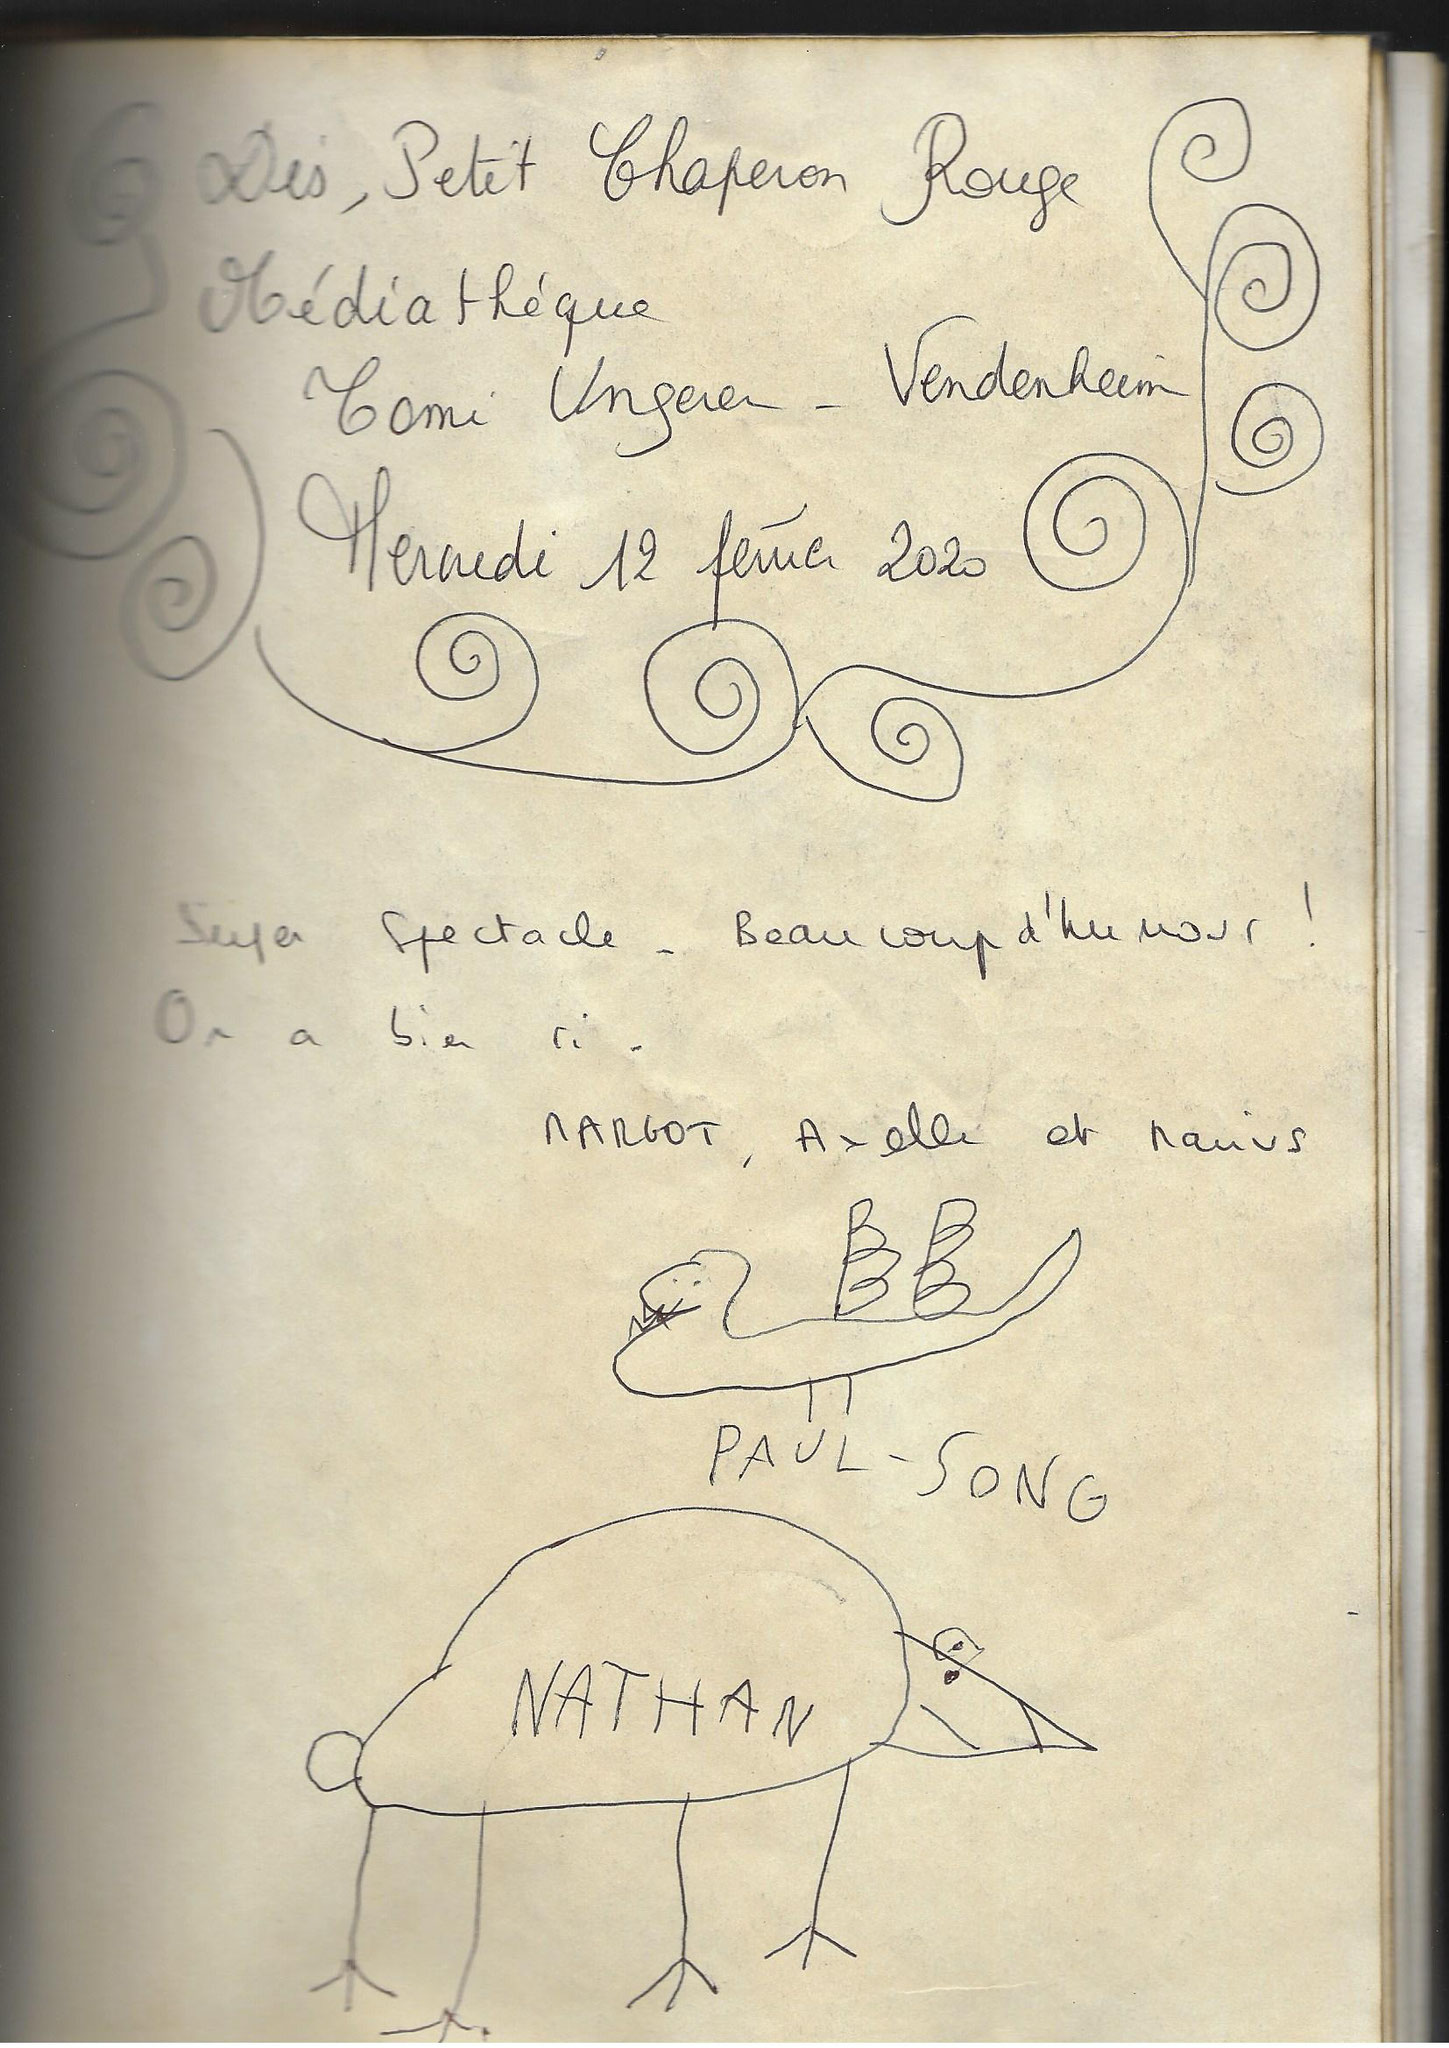 Dis, Petit Chaperon Rouge
Médiathéque
Tomi Ungerer - Vendenheim
Mercredi 12 février 2020
Super spectacle - Beaucoup d'humour !
On a bien ri.
MARGOT, Axelle et Marius
PAUL-SONG
NATHAN